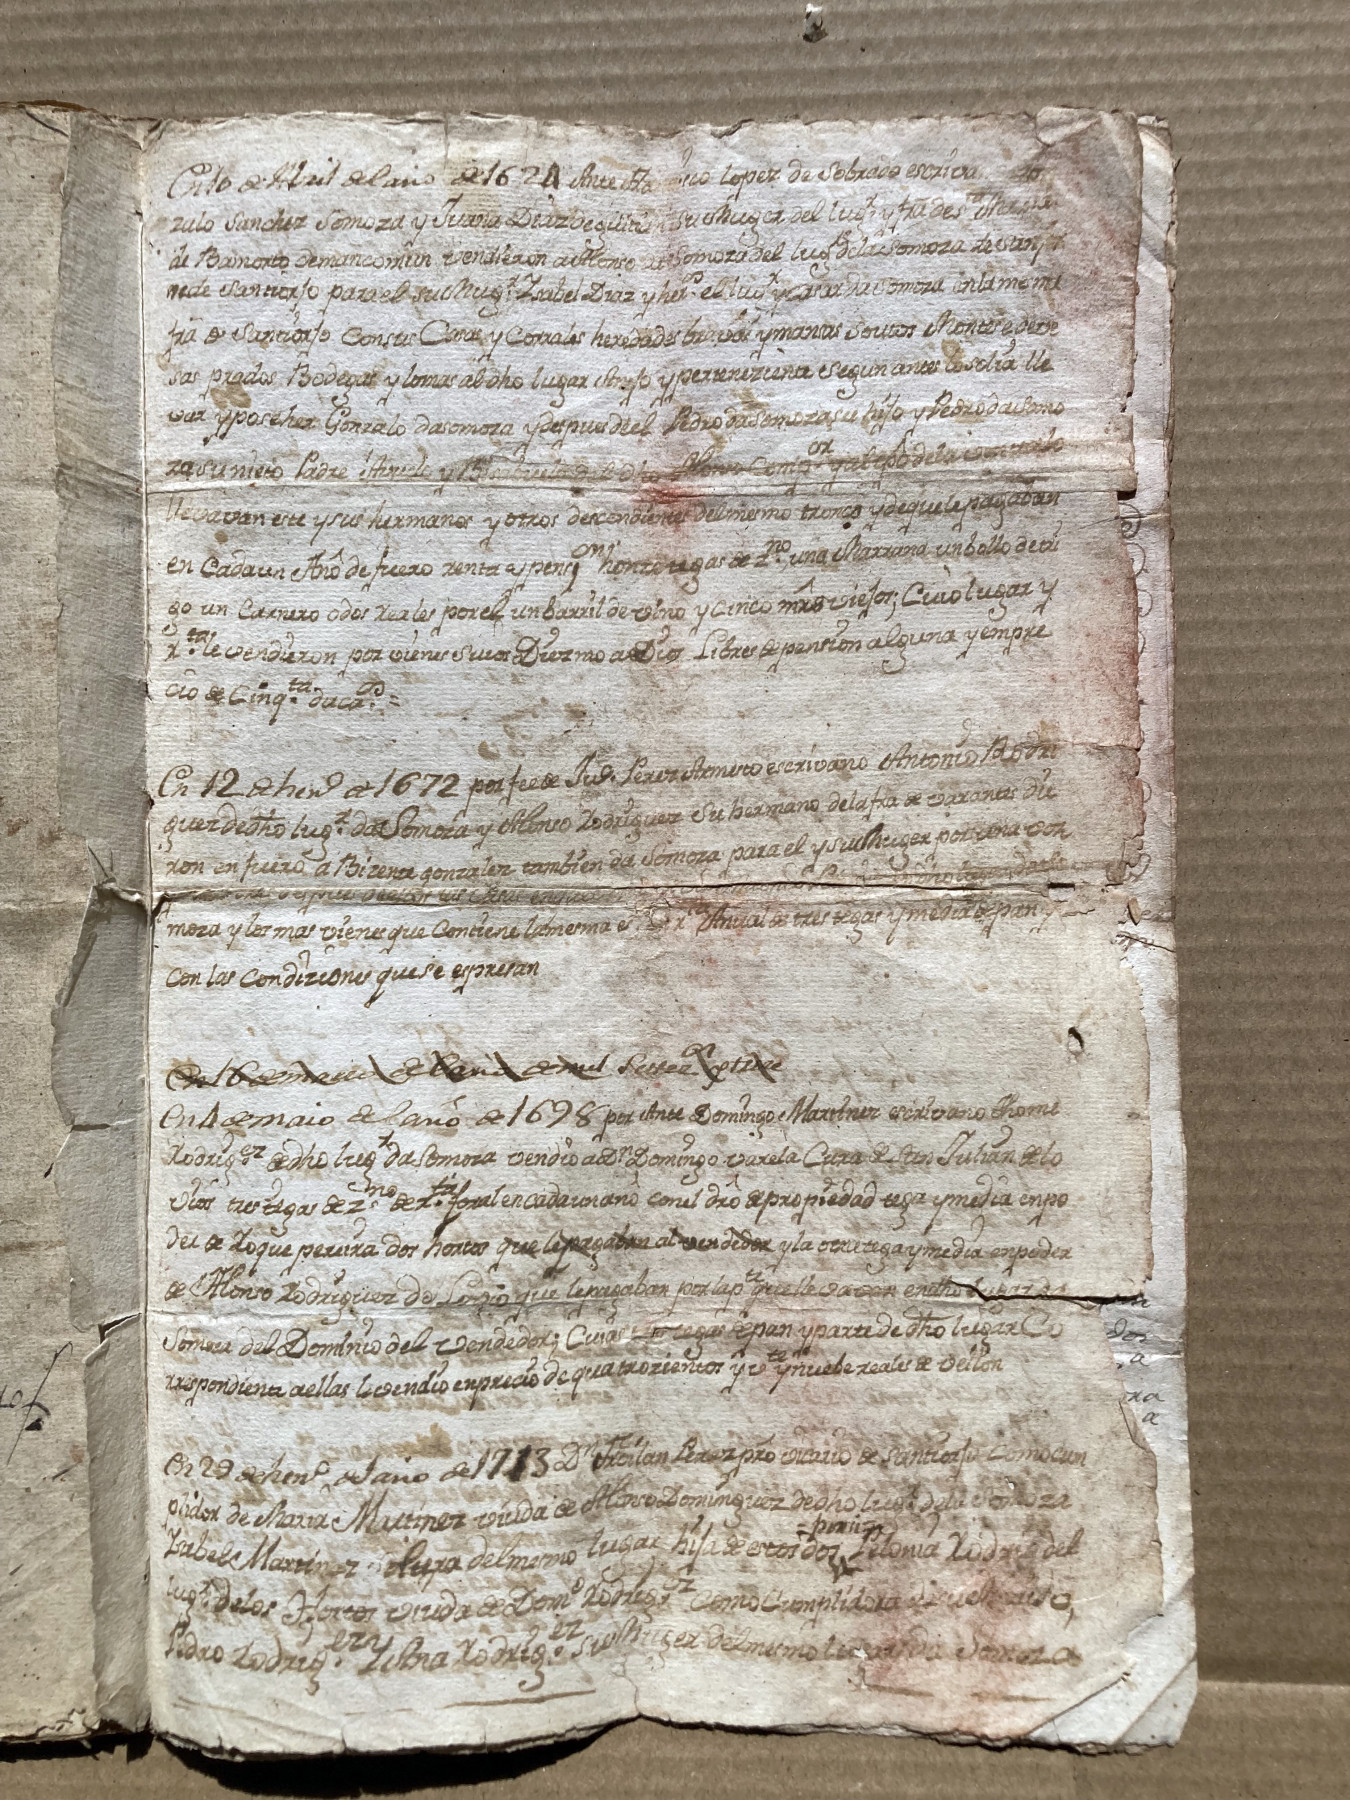 En 10 de Abril del año de 1621 Ante Lopez de Sobrado escriva
zalo Sanchez Somoza y Juana Diaz de guitian su Muger del lug.r y fra de s.ta
de Bamorto demancomun vendieron a Alonso da Somoza del lug.r dela Somoza de
de Santiorjo para el su Mug.r Ysabel Diaz y her.s el lug.r y Casar da Somoza en la mesma
fra de Santiorjo con sus Casas y Corrales heredades bravas y mansas Soutos Montes deve
sas prados Bodegas y lo mas al dho lugar Anejo y perteneziente segun antes lo solia lle
var y poseher Gonzalo dasomoza y despues de el Pedro da Somoza su hijo y Pedro da Somo
za su nieto Padre Avuelo y Bisavuelo del dho Alonso Comp.or y al tpo dela
llevavan este y sus hermanos y otros descendientes del mesmo tronco y de que le pagaban
en Cada un Año de fuero renta y pens.on honze tegas de z.no una Marrana un bollo de tri
go un Carnero o dos reales por el, un barril de vino y Cinco mrs viejos; Cuio lugar y
r.ta le vendieron por vienes suios Diezmo a Dios Libres de pension alguna y en pre
cio de Cinq.ta ducados =
En 12 de hen.o de 1672 por fee de Ju.o Perez Armesto escrivano Antonio Rodri
guez de dho lug.r da Somoza y Alonso Rodriguez su hermano dela fra de varantes die
ron en fuero a Bizente gonzalez tambien da Somoza para el y su Muger por una voz
moza y los mas vienes que Contiene la mesma r.ta Anual de tres tegas y media de pan y
con las Condiziones que se espresan
En 16 de de mil
En 4 de maio del año de 1698 por Ante Domingo Martinez escrivano Thome
Rodrig.ez de dho lug.r da Somoza vendio a Dn Domingo varela Cura de San Julian de lo
vios tres tegas de z.no de r.ta foral en cada un ano con el dro de propiedad tega y media en po
der de Roque pereira dos hortos que le pagaban al vendedor y la otra tega y media en poder
de Alonso Rodriguez de que le pagaban por la p.te que llevavan en dho lugar da
Somoza del Dominio del vendedor; Cuias tres tegas de pan y parte de dho lugar Co
rrespondiente a ellas le vendio en precio de quatrozientos y v.te y nuebe reales de vellon
En 29 de hen.o del año de 1713 Dn Froilan Perez pro vicario de Santiorjo como cun
plidor de Maria Martinez viuda de Alonso Dominguez de dho lug.r dela Somoza
Ysabel Martinez soltera del mesmo lugar hija de estos dos Polonia Rodrig.z del
lug.r de los Hortos viuda de Dom.o Rodrig.ez Como Cumplidora de su marido,
Pedro Rodrig.ez y Ana Rodrig.ez su Muger del mesmo lugar da Somoza